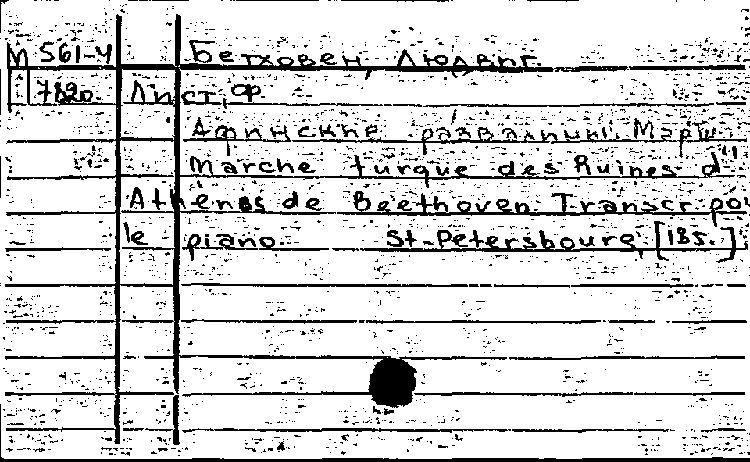 М 561-4 Бетховен, Людвиг.
7820. Лист, Ф.
Афинские развалины. Марш.
Marche turque des Ruines d'
Athènes de Beethoven. Transcr. pou
le piano. St-Petersbourg, [185.].